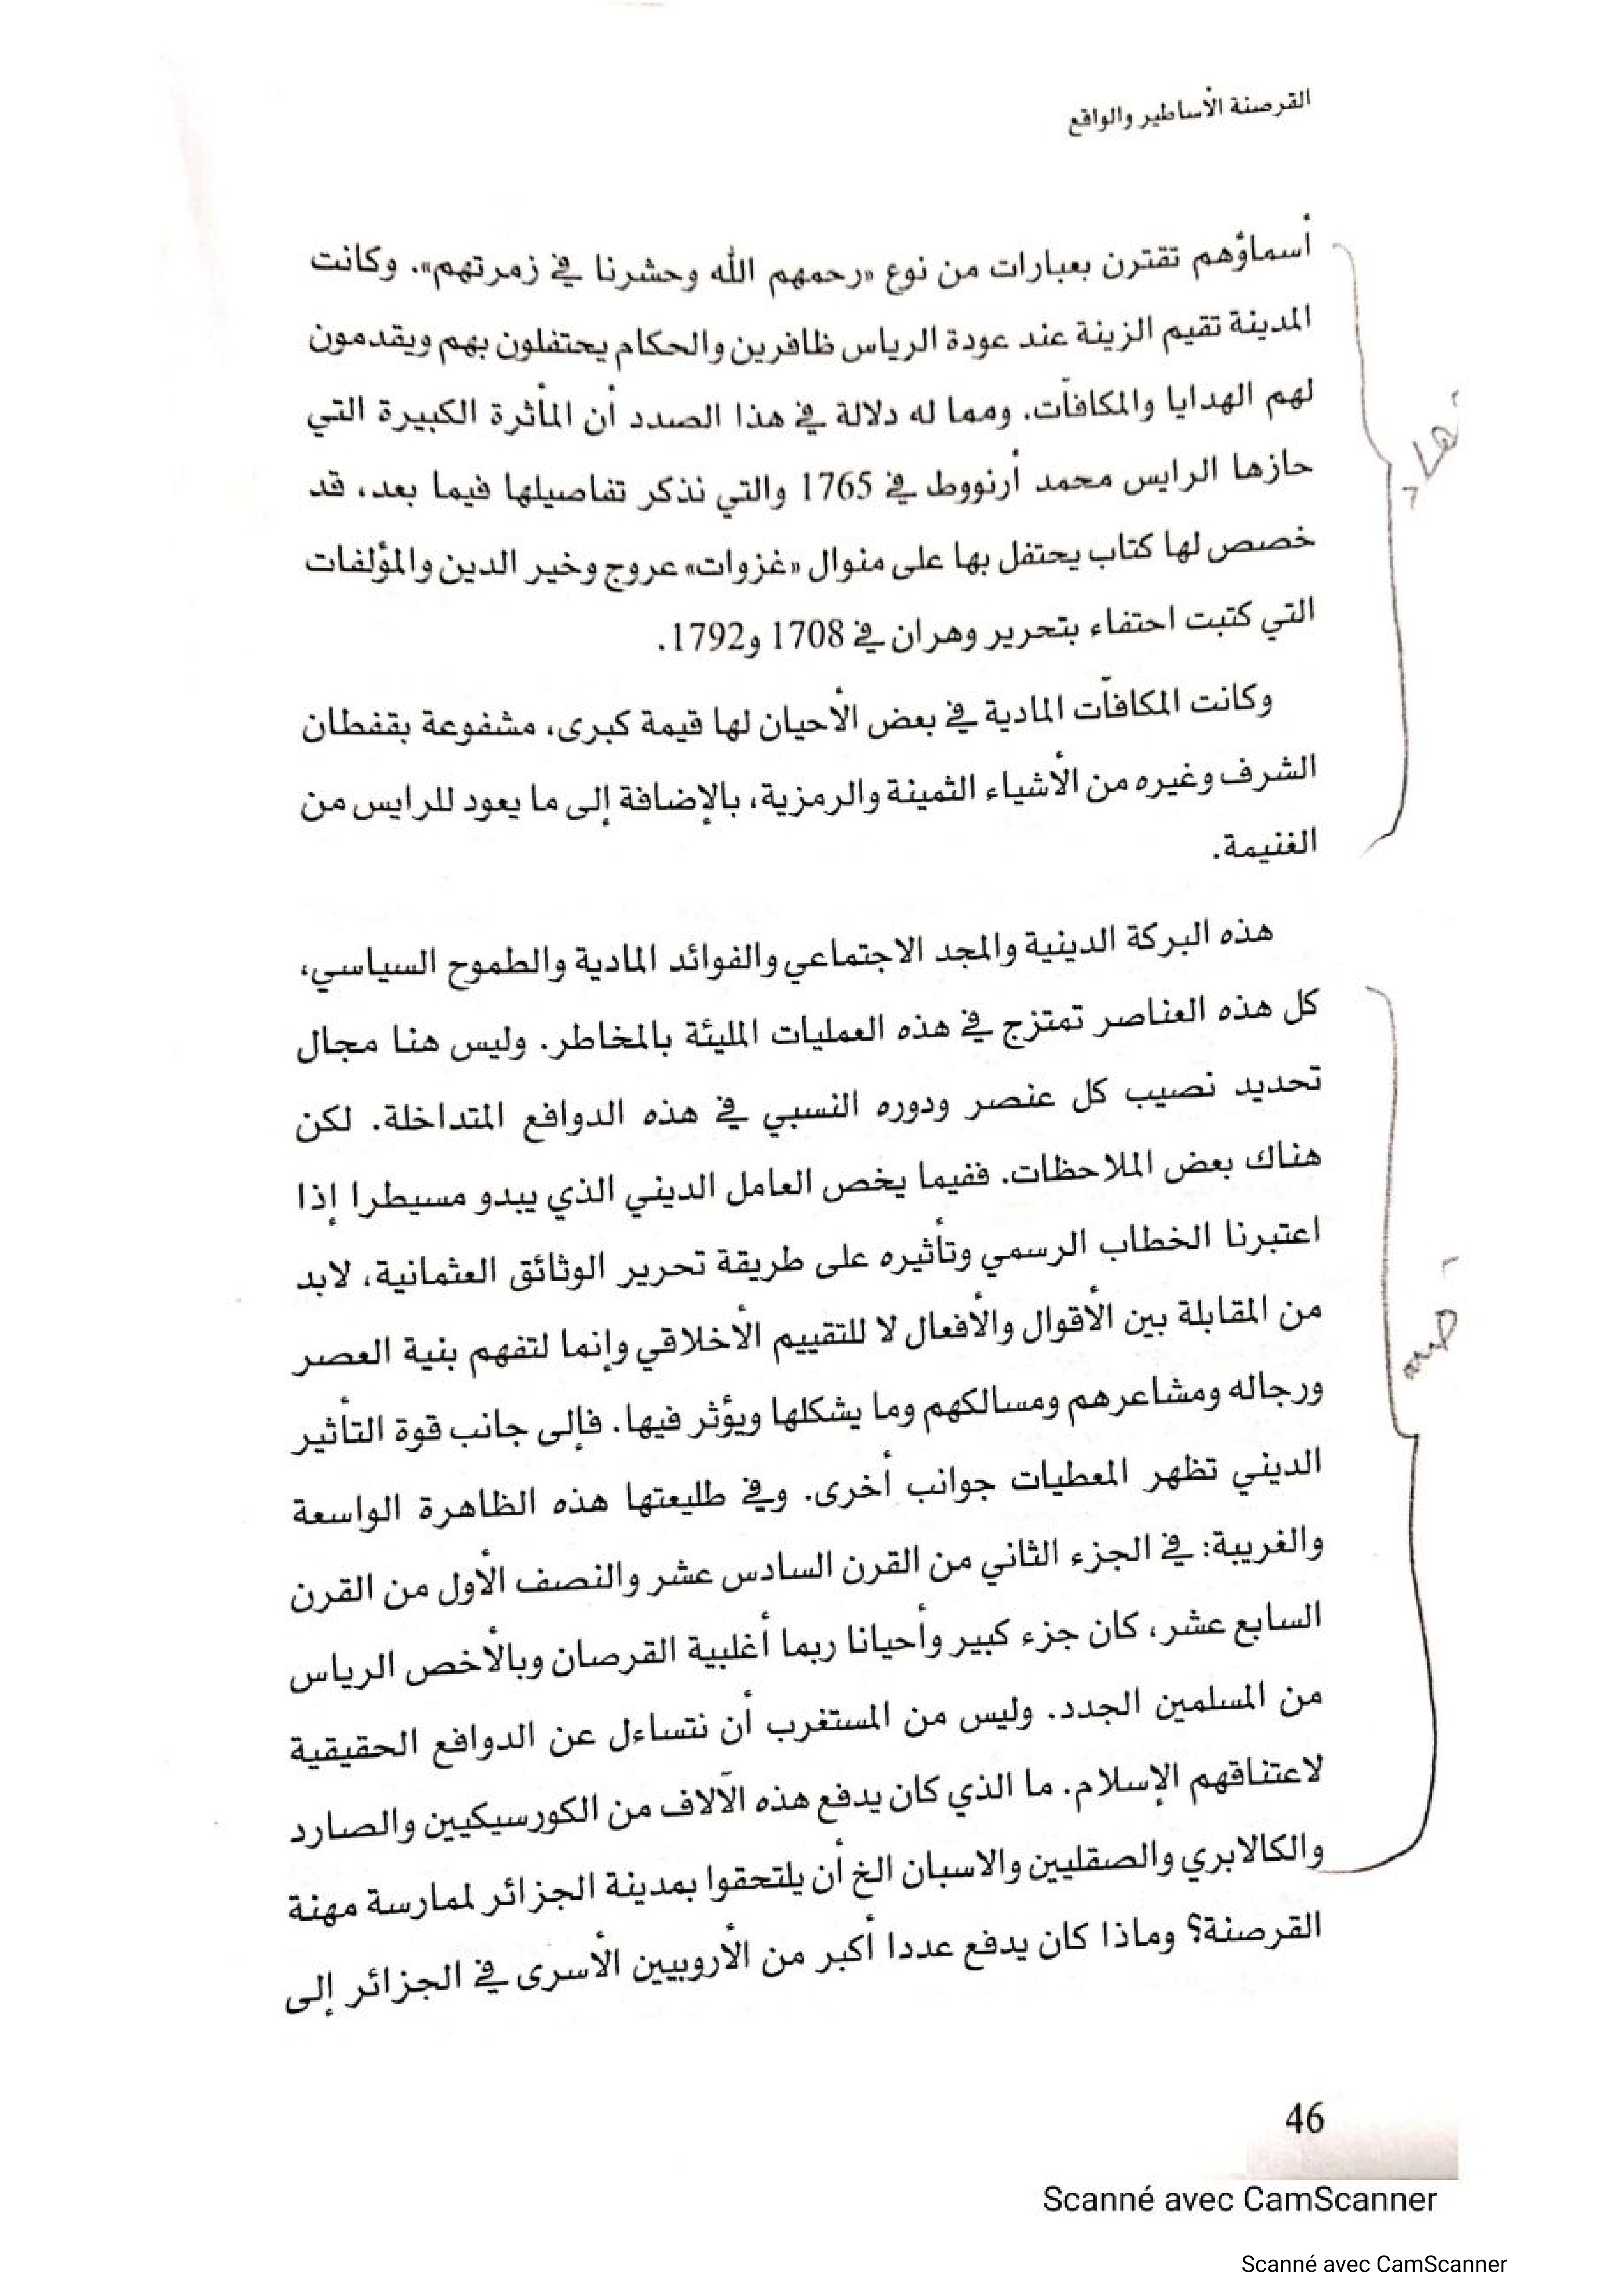 القرصنة الأساطير والواقع
أسماؤهم تقترن بعبارات من نوع «رحمهم الله وحشرنا في زمرتهم». وكانت
المدينة تقيم الزينة عند عودة الرياس ظافرين والحكام يحتفلون بهم ويقدمون
لهم الهدايا والمكافآت. ومما له دلالة في هذا الصدد أن المأثرة الكبيرة التي
حازها الرايس محمد أرنووط في 1765 والتي نذكر تفاصيلها فيما بعد، قد
خصص لها كتاب يحتفل بها على منوال «غزوات» عروج وخير الدين والمؤلفات
التي كتبت احتفاء بتحرير وهران في 1708 و1792.
وكانت المكافآت المادية في بعض الأحيان لها قيمة كبرى، مشفوعة بقفطان
الشرف وغيره من الأشياء الثمينة والرمزية، بالإضافة إلى ما يعود للرايس من
الغنيمة.
هذه البركة الدينية والمجد الاجتماعي والفوائد المادية والطموح السياسي،
كل هذه العناصر تمتزج في هذه العمليات المليئة بالمخاطر. وليس هنا مجال
تحديد نصيب كل عنصر ودوره النسبي في هذه الدوافع المتداخلة. لكن
هناك بعض الملاحظات. ففيما يخص العامل الديني الذي يبدو مسيطرا إذا
اعتبرنا الخطاب الرسمي وتأثيره على طريقة تحرير الوثائق العثمانية، لابد
من المقابلة بين الأقوال والأفعال لا للتقييم الأخلاقي وإنما لتفهم بنية العصر
ورجاله ومشاعرهم ومسالكهم وما يشكلها ويؤثر فيها. فإلى جانب قوة التأثير
الديني تظهر المعطيات جوانب أخرى. وفي طليعتها هذه الظاهرة الواسعة
والغريبة: في الجزء الثاني من القرن السادس عشر والنصف الأول من القرن
السابع عشر، كان جزء كبير وأحيانا ربما أغلبية القرصان وبالأخص الرياس
من المسلمين الجدد. وليس من المستغرب أن نتساءل عن الدوافع الحقيقية
لاعتناقهم الإسلام. ما الذي كان يدفع هذه الآلاف من الكورسيكيين والصارد
والكالابري والصقليين والاسبان الخ أن يلتحقوا بمدينة الجزائر لممارسة مهنة
القرصنة؟ وماذا كان يدفع عددا أكبر من الأروبيين الأسرى في الجزائر إلى
46
Scanné avec CamScanner
Scanné avec CamScanner